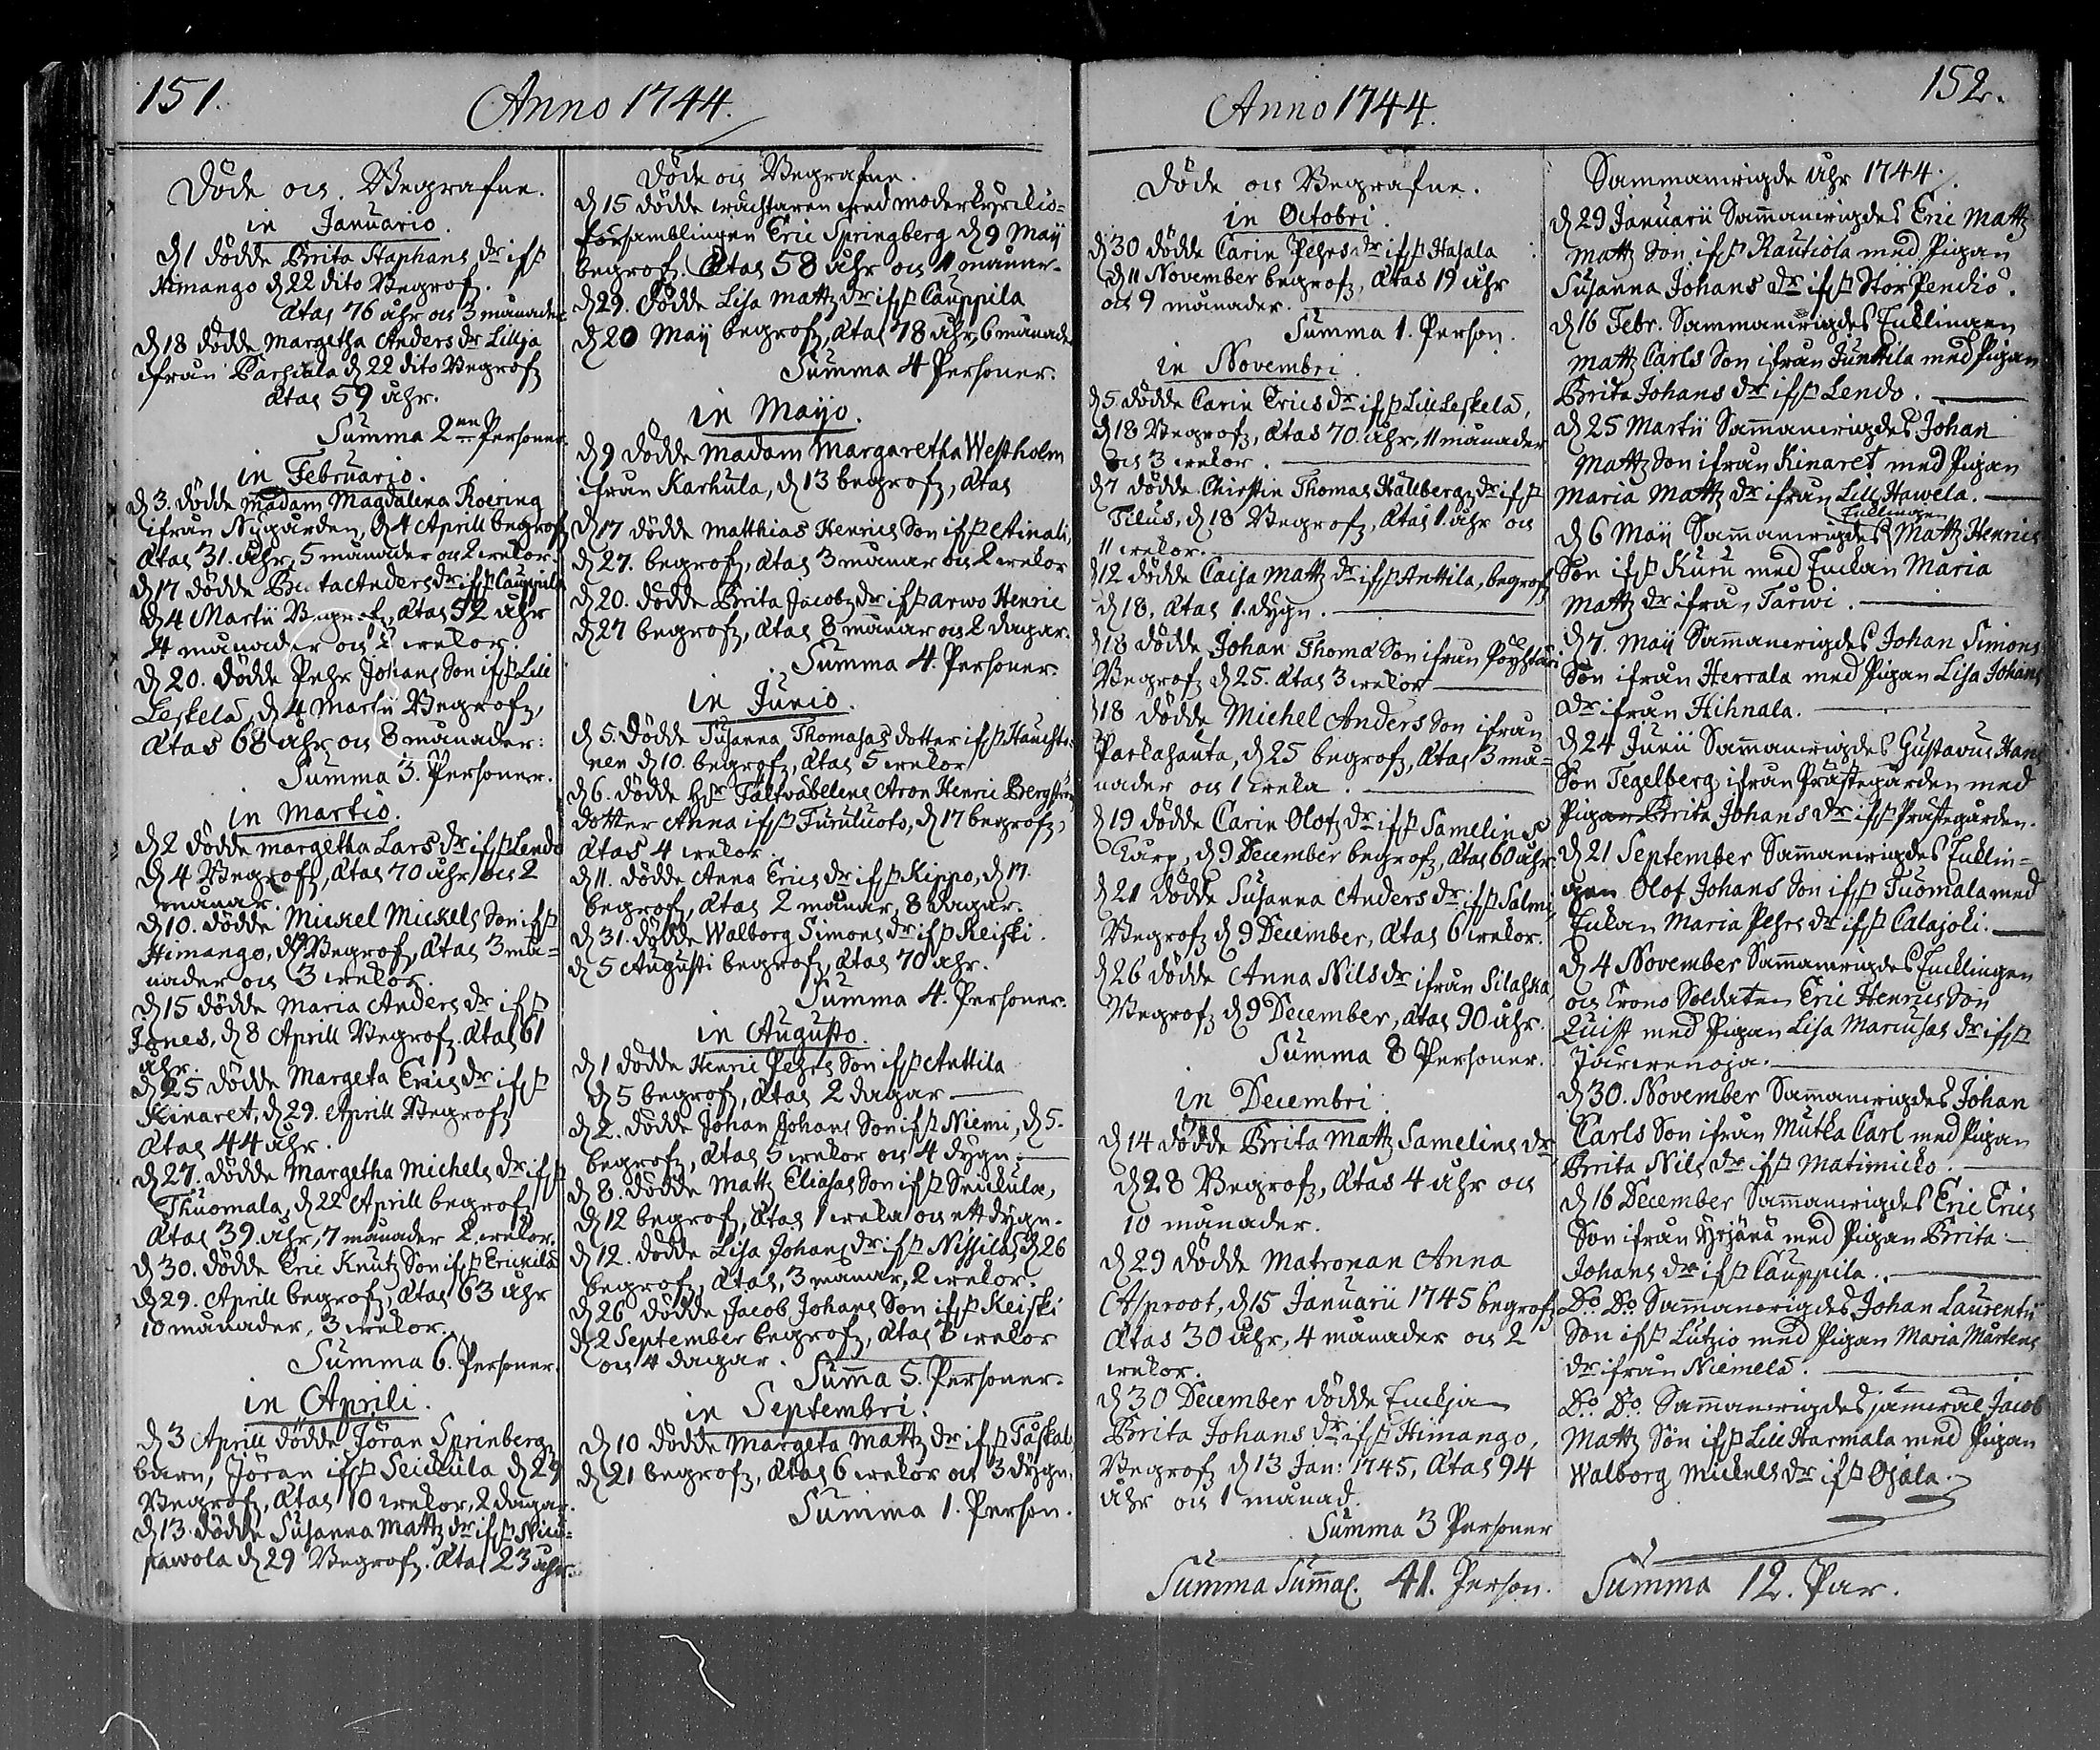 151.
Anno 1744.
Döde och Begrafne.
in Januario.
d 1 dödde Brita Staphans dr ifrå
Himango d 22 dito Begrofz.
Ætas 76 åhr och 3 månader
d 18 dödde Margetha Anders dr Lillja
ifrån Pachkala d 22 dito Begrofz
Ætas 59 åhr.
Summa 2ne Personer.
in Februario.
d 3. dödde Madam Magdalena Roering
ifrån Nygården, d 4 Aprill begrofz
Ætas 31. åhr, 5 månader och 2 wekor.
d 17 dödde Anders dr ifrå Cauppila
d 4 Martii Begrofz, Ætas 52 åhr
4 månader och 2 wekor.
d 20. dödde Pehr Johans Son ifrå Lill
Leskelä, d 4 Martii Begrofz,
Ætas 68 åhr och 8 månader:
Summa 3. Personer.
in Martio.
d 2 dödde Margetha Lars dr ifrå Lendo
d 4 Begrofz, Ætas 70 åhr och 2
månar.
d 10. dödde Mickel Mickels Son ifrå
Himango, d Begrof, Ætas 3 må=
nader och 3 wekor.
d 15 dödde Maria Anders dr ifrå
Jones, d 8 Aprill Begrofz. Ætas 61
åhr.
d 25 dödde Margeta Erics dr ifrå
Kinaret, d 29. Aprill Begrofz
Ætas 44 åhr.
d 27. dödde Margetha Michels dr ifrå
Thuomala, d 22 Aprill begrofz
Ætas 39. åhr, 7 månader 2 wekor.
d 30. dödde Eric Knutz Son ifrå Erickilä
d 29. Aprill begrofz, Ætas 63 åhr
10 månader, 3 wekor.
Summa 6. Personer.
in Aprili.
d 3 Aprill dödde Jöran Sprinbergz
barn, Jöran ifrå Seickula d 29
Begrofz, Ætas 10 wekor, 2 dagar.
d 13 dödde Susanna Mattz dr ifrå
pawola d 29 Begrofz. Ætas 23 åhr.
Döde och Begrafne.
d 15 dödde wächtaren wed moderkyrckio=
församblingen Eric Springberg d 9 Maij
begrofz. Ætas 58 åhr och 11 månar.
d 29. dödde Lisa Mattz dr ifrå Cauppila
d 20 Maij begrofz, Ætas 78 åhr, 6 månade
Summa 4 Personer.
in Mayo.
d 9 dödde Madam Margaretha Westholm
ifrån Karhula, d 13 begrofz, Ætas
d 17 dödde Matthias Henrics Son ifrå Ainali,
d 27. begrofz, Ætas 3 månar och 2 wekor
d 20. dödde Brita Jacobz dr ifrå Arwo Henric
d 27 begrofz, Ætas 8 månar och 2 dagar.
Summa 4. Personer.
in Junio.
d 5. dödde Susanna Thomasas dotter ifrå Hauchto=
nen d 10. begrofz, Ætas 5 wekor
d 6. dödde Hr Fältwäbelens Aron Henric Bergström
dotter Anna ifrå Furuluoto, d 17 begrofz,
Ætas 4 wekor.
d 11. dödde Anna Erics dr ifrå Kippo, d 17.
begrofz, Ætas 2 månar, 8 dagar.
d 31. dödde Walborg Simons dr ifrå Keiski.
d 5 Augusti begrofz, Ætas 70 åhr.
Summa 4. Personer.
in Augusto.
d 1 dödde Henric Pehrs Son ifrå Anttila
d 5 begrofz, Ætas 2 dagar
d 2. dödde Johan Johans Son ifrå Niemi, d 5.
begrofz, Ætas 5 wekor och 4 dygn.
d 8. dödde Mattz Eliasas Son ifrå Seickula,
d 12 begrofz, Ætas 1 weka och ett dygn.
d 12. dödde Lisa Johans dr ifrå Nissilä, d 26
begrofz, Ætas, 3 månar, 2 wekor.
d 26 dödde Jacob Johans Son ifrå Keiski
d 2 September begrofz, Ætas 3 wekor
och 4 dagar.
Summa 5. Personer.
in Septembri.
d 10 dödde Margeta Mattz dr ifrå Taskal
d 21 begrofz, Ætas 6 wekor och 3 dygn.
Summa 1. Person.
Anno 1744.
152.
Döde och Begrafne.
in Octobri.
d 30 dödde Carin Pehrs dr ifrå Hasala
d 11 November begrofz, Ætas 19 åhr
och 9 månader.
Summa 1. Person.
in Novembri.
d 5 dödde Carin Erics dr ifrå Lill Leskelä,
d 18 Begrofz, Ætas 70. åhr, 11 månader
och 3 wekor.
d 7 dödde Chirstin Thomas Hällbergz dr ifrå
Tilus, d 18 Begrofz, Ætas 1. åhr och
11 wekor.
d 12 dödde Caisa Mattz dr ifrå Anttila, begrofz
d 18. Ætas 1. dygn.
d 18 dödde Johan Thoma Son ifrån
Begrofz d 25. Ætas 3 wekor
d 18 dödde Michel Anders Son ifrån
Parkahauta, d 25 begrofz, Ætas 3 må=
nader och 1 weka.
d 19 dödde Carin Olofz dr ifrå Samelin
Karp, d 9 December begrofz, Ætas 60 åhr
d 21 dödde Susanna Anders dr ifrå Salmi,
Begrofz d 9 December, Ætas 6 wekor.
d 26 dödde Anna Nils dr ifrån Silahka,
Begrofz d 9 December, Ætas 90 åhr.
Summa 8 Personer.
in Decembri
d 14 dödde Brita Mattz Samelins dr
d 28 Begrofz, Ætas 4 åhr och
10 månader.
d 29 dödde Matronan Anna
Asproot, d 15 Januarii 1745 begrofz
Ætas 30 åhr, 4 månader och 2
wekor.
d 30 December dödde Enckja
Brita Johans dr ifrå Himango,
Begrofz d 13 Jan: 1745, Ætas 94
åhr och 1 månad.
Summa 3 Personer
Summa Summar. 41. Person.
Sammanwigde åhr 1744.
d 29 Januarii Samanwigdes Eric Mattz
Mattz Son ifrå Rautiola med Pigan
Susanna Johans dr ifrå Stor Penckiö.
d 16 Febr. Sammanwigdes Enklingen
Mattz Carls Son ifrån Junttila med Pigan
Brita Johans dr ifrå Lendo.
d 25 Martii Samanwigdes Johan
Mattz Son ifrån Kinaret med Pigan
Maria Mattz dr ifrån Lill Hawela.
Enklingen
d 6 Maij Samanwigdes Mattz Henrics
Son ifrå Kuru med Enckan Maria
Mattz dr ifrån Tarwi.
d 7. Maij Samanwigdes Johan Simons
Son ifrån Herrala med Pigan Lisa Johans
dr ifrån Hihnala.
d 24 Junii Samanwigdes Gustavus Hans
Son Tegelberg ifrån Prästegården med
Pigan Brita Johans dr ifrå Prästegården.
d 21 September Samanwigdes Encklin=
gen Olof Johans Son ifrå Tuomala med
Enkan Maria Pehrs dr ifrå Calajoki.
d 4 November Samanwigdes Encklingen
och Crono Soldaten Eric Henrics Son
Quist med Pigan Lisa Marcusas dr ifrå
Jäwenoja.
d 30. November Samanwigdes Johan
Carls Son ifrån Mutka Carl med Pigan
Brita Nils dr ifrå Matimicko.
d 16 December Samanwigdes Eric Erics
Son ifrån Yrjänä med Pigan Brita
Johans dr ifrå Cauppila.
Do. Do. Samanwigdes Johan Laurentii
Son ifrå Lutzio med Pigan Maria Mårtens
dr ifrån Niemelä.
Do. Do. Samanwigdes jämwäl Jacob
Mattz Son ifrå Lill Harmala med Pigan
Walborg Mickels dr ifrå Ojala.
Summa 12. Par.